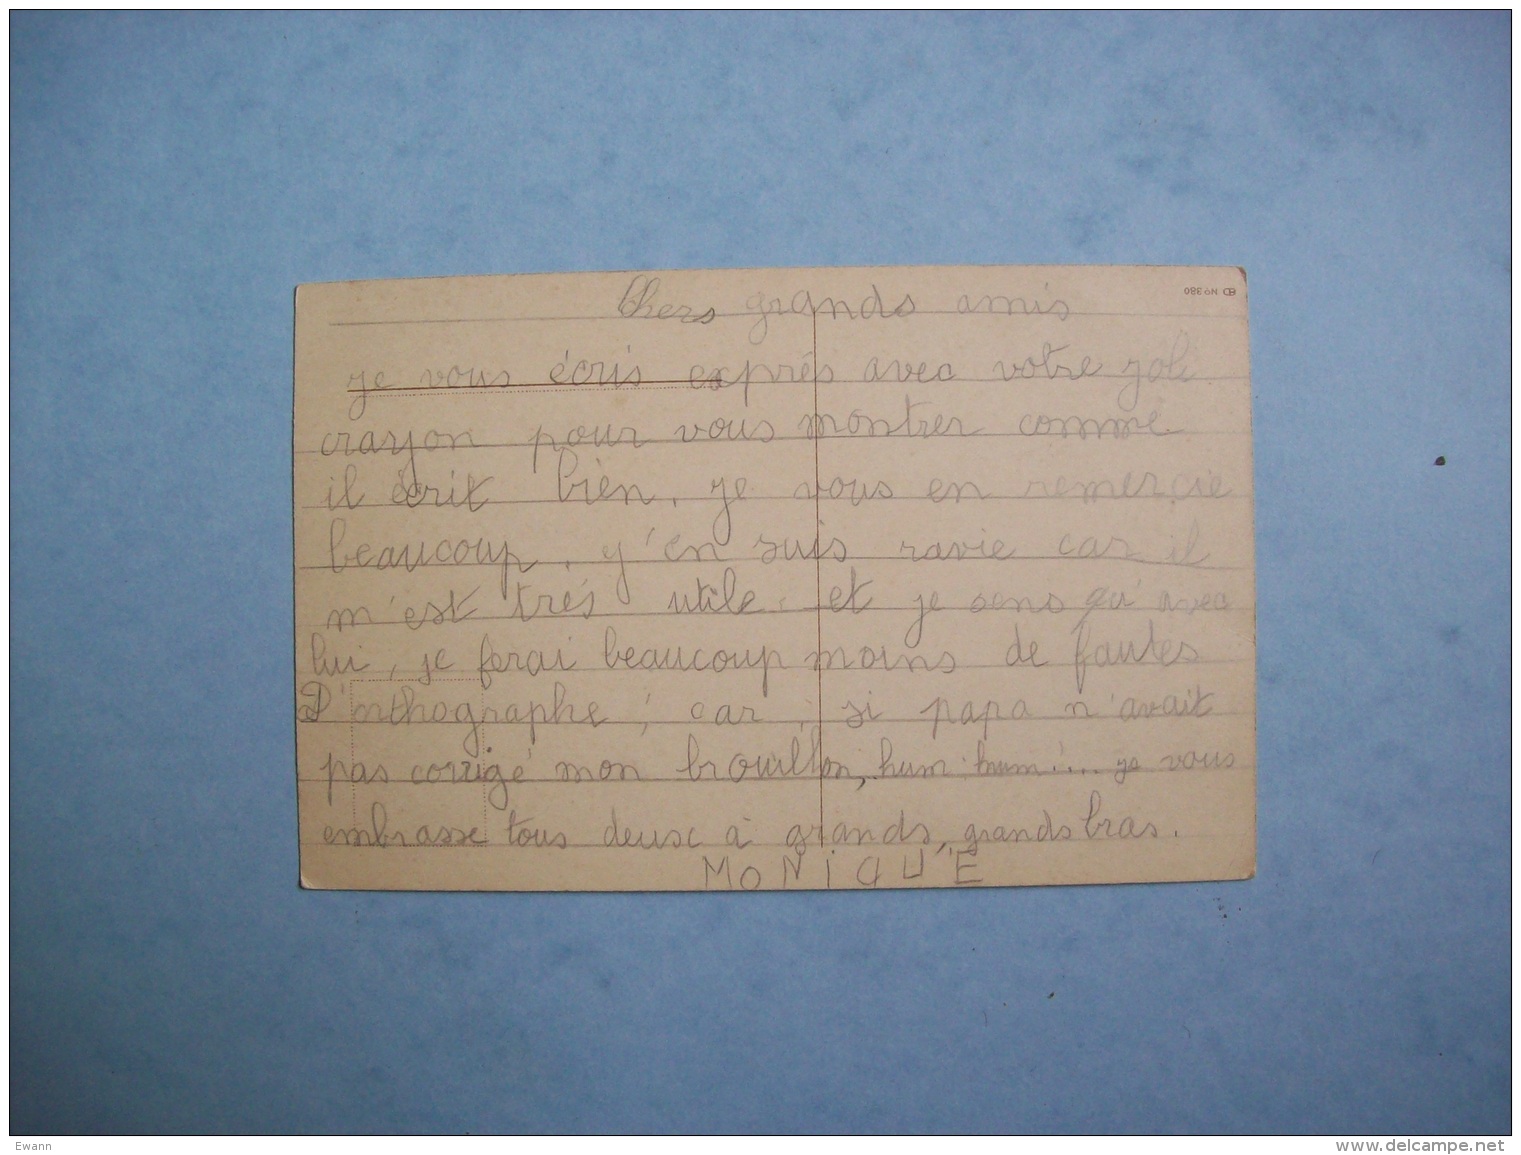 Chers grands amis
je vous écris exprés avec votre joli
crayon pour vous montrer comme
il écrit bien. je vous en remercie
beaucoup. j'en suis ravie car il
m'est trés utile. et je sens qu'avec
lui, je ferai beaucoup moins de fautes
D'orthographe ; car, si papa n'avait
pas corrigé mon brouillon, hum hum!... je vous
embrasse tous deux à grands, grands bras.
MONIQUE
No 380
Ewann
www.delcampe.net